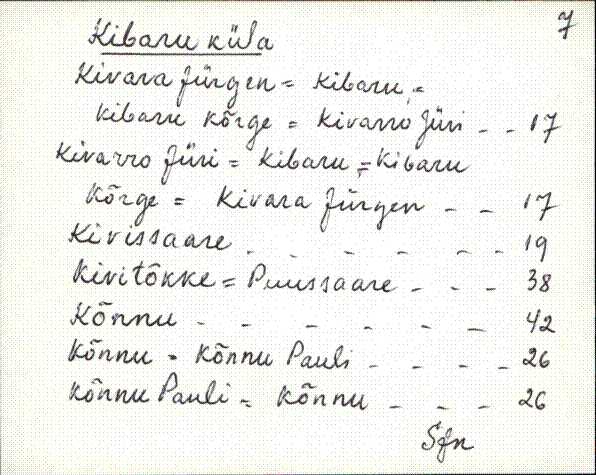 7
Kibaru küla
Kivara Jürgen = Kibaru =
Kibaru Kõrge = Kivarro Jüri - - 17
Kivarro Jüri = Kibaru = Kibaru
Kõrge = Kivara Jürgen - - 17
Kivissaare - - - - - - 19
Kivitõkke = Puussaare - - - 38
Kõnnu - - - - - - 42
Kõnnu = Kõnnu Pauli - - - - 26
Kõnnu Pauli = Kõnnu - - - 26